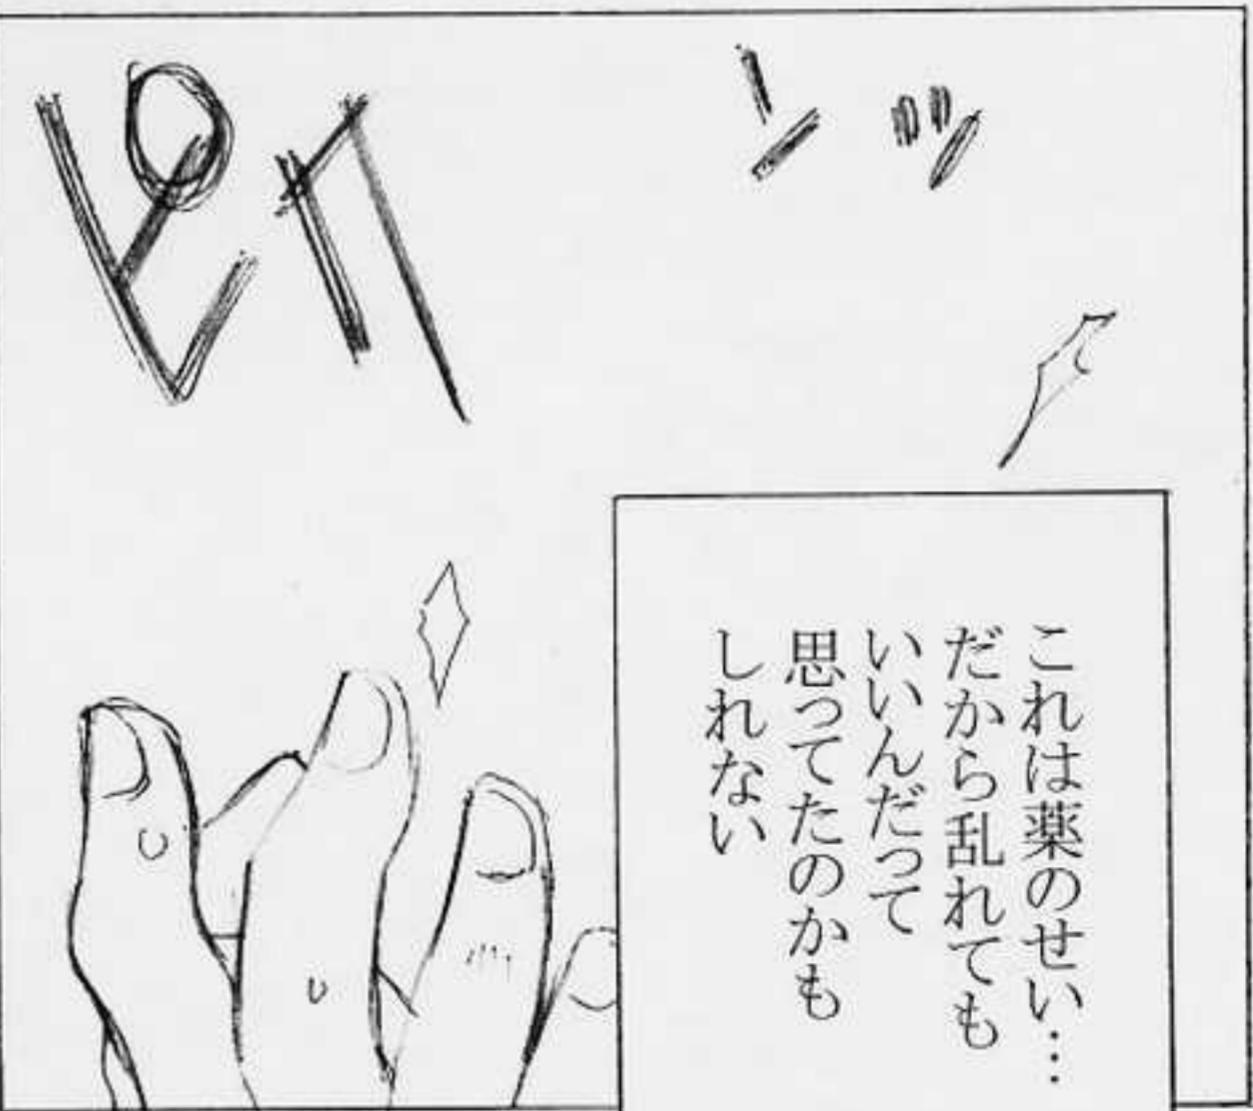 これは薬のせい…
だから乱れても
いいんだって
思ってたのかも
しれない